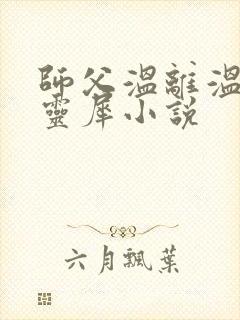 師父溫離溫
靈犀小說
六月飄葉